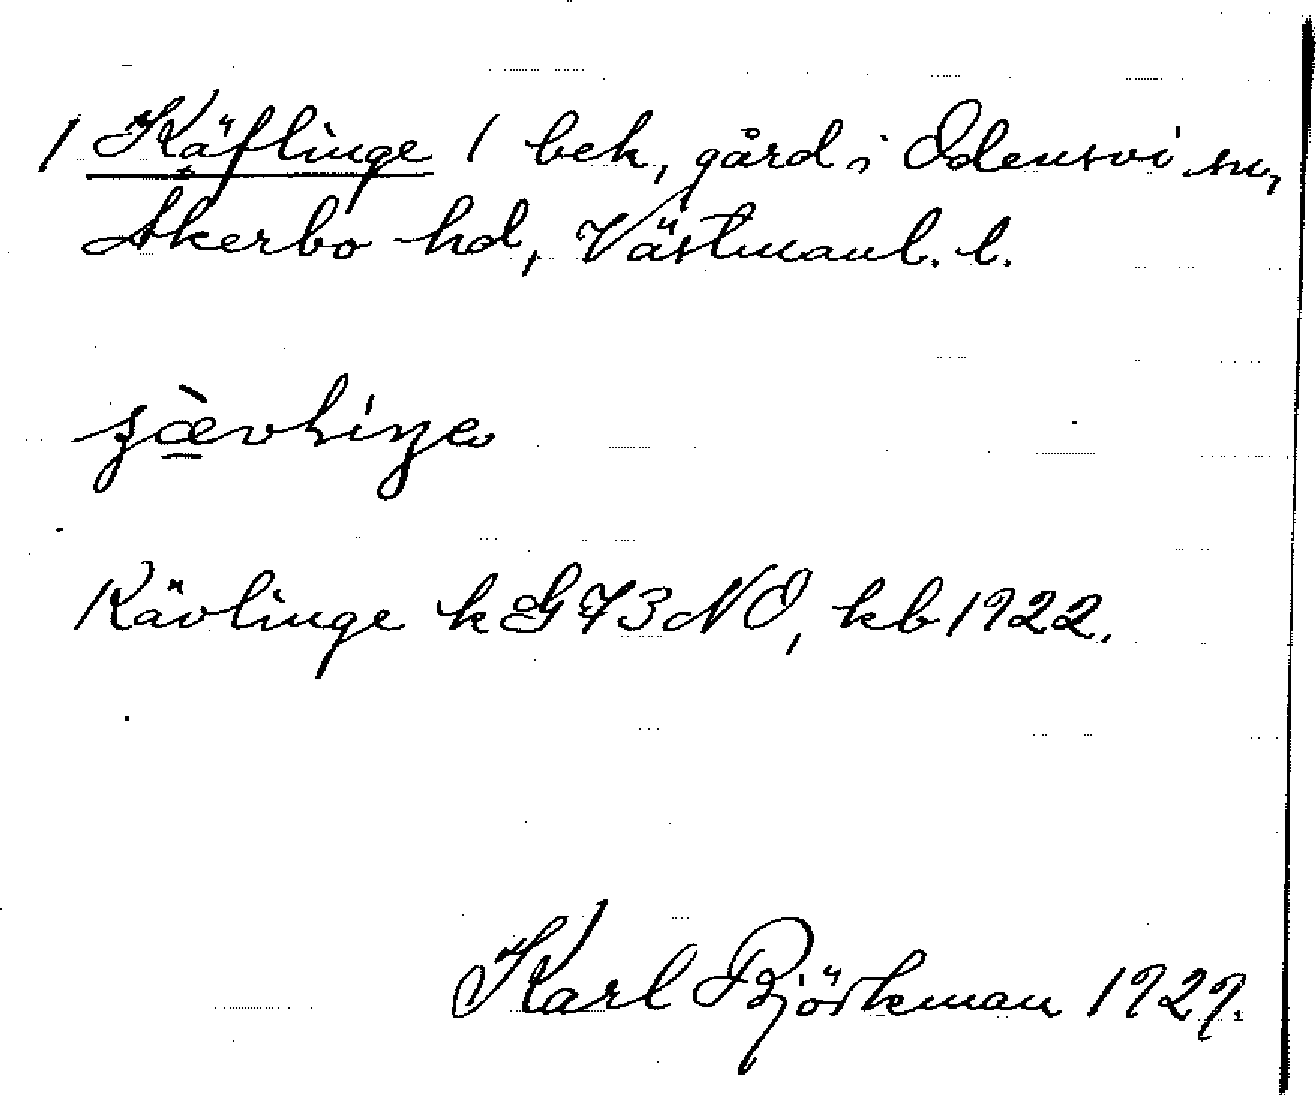 1 Käflinge 1 bek, gård i Odensvi sn,
Åkerbo hd, Västmanl. l.
Kävlinge k G 73 NO, kb 1922.
Karl Björkman 1929.